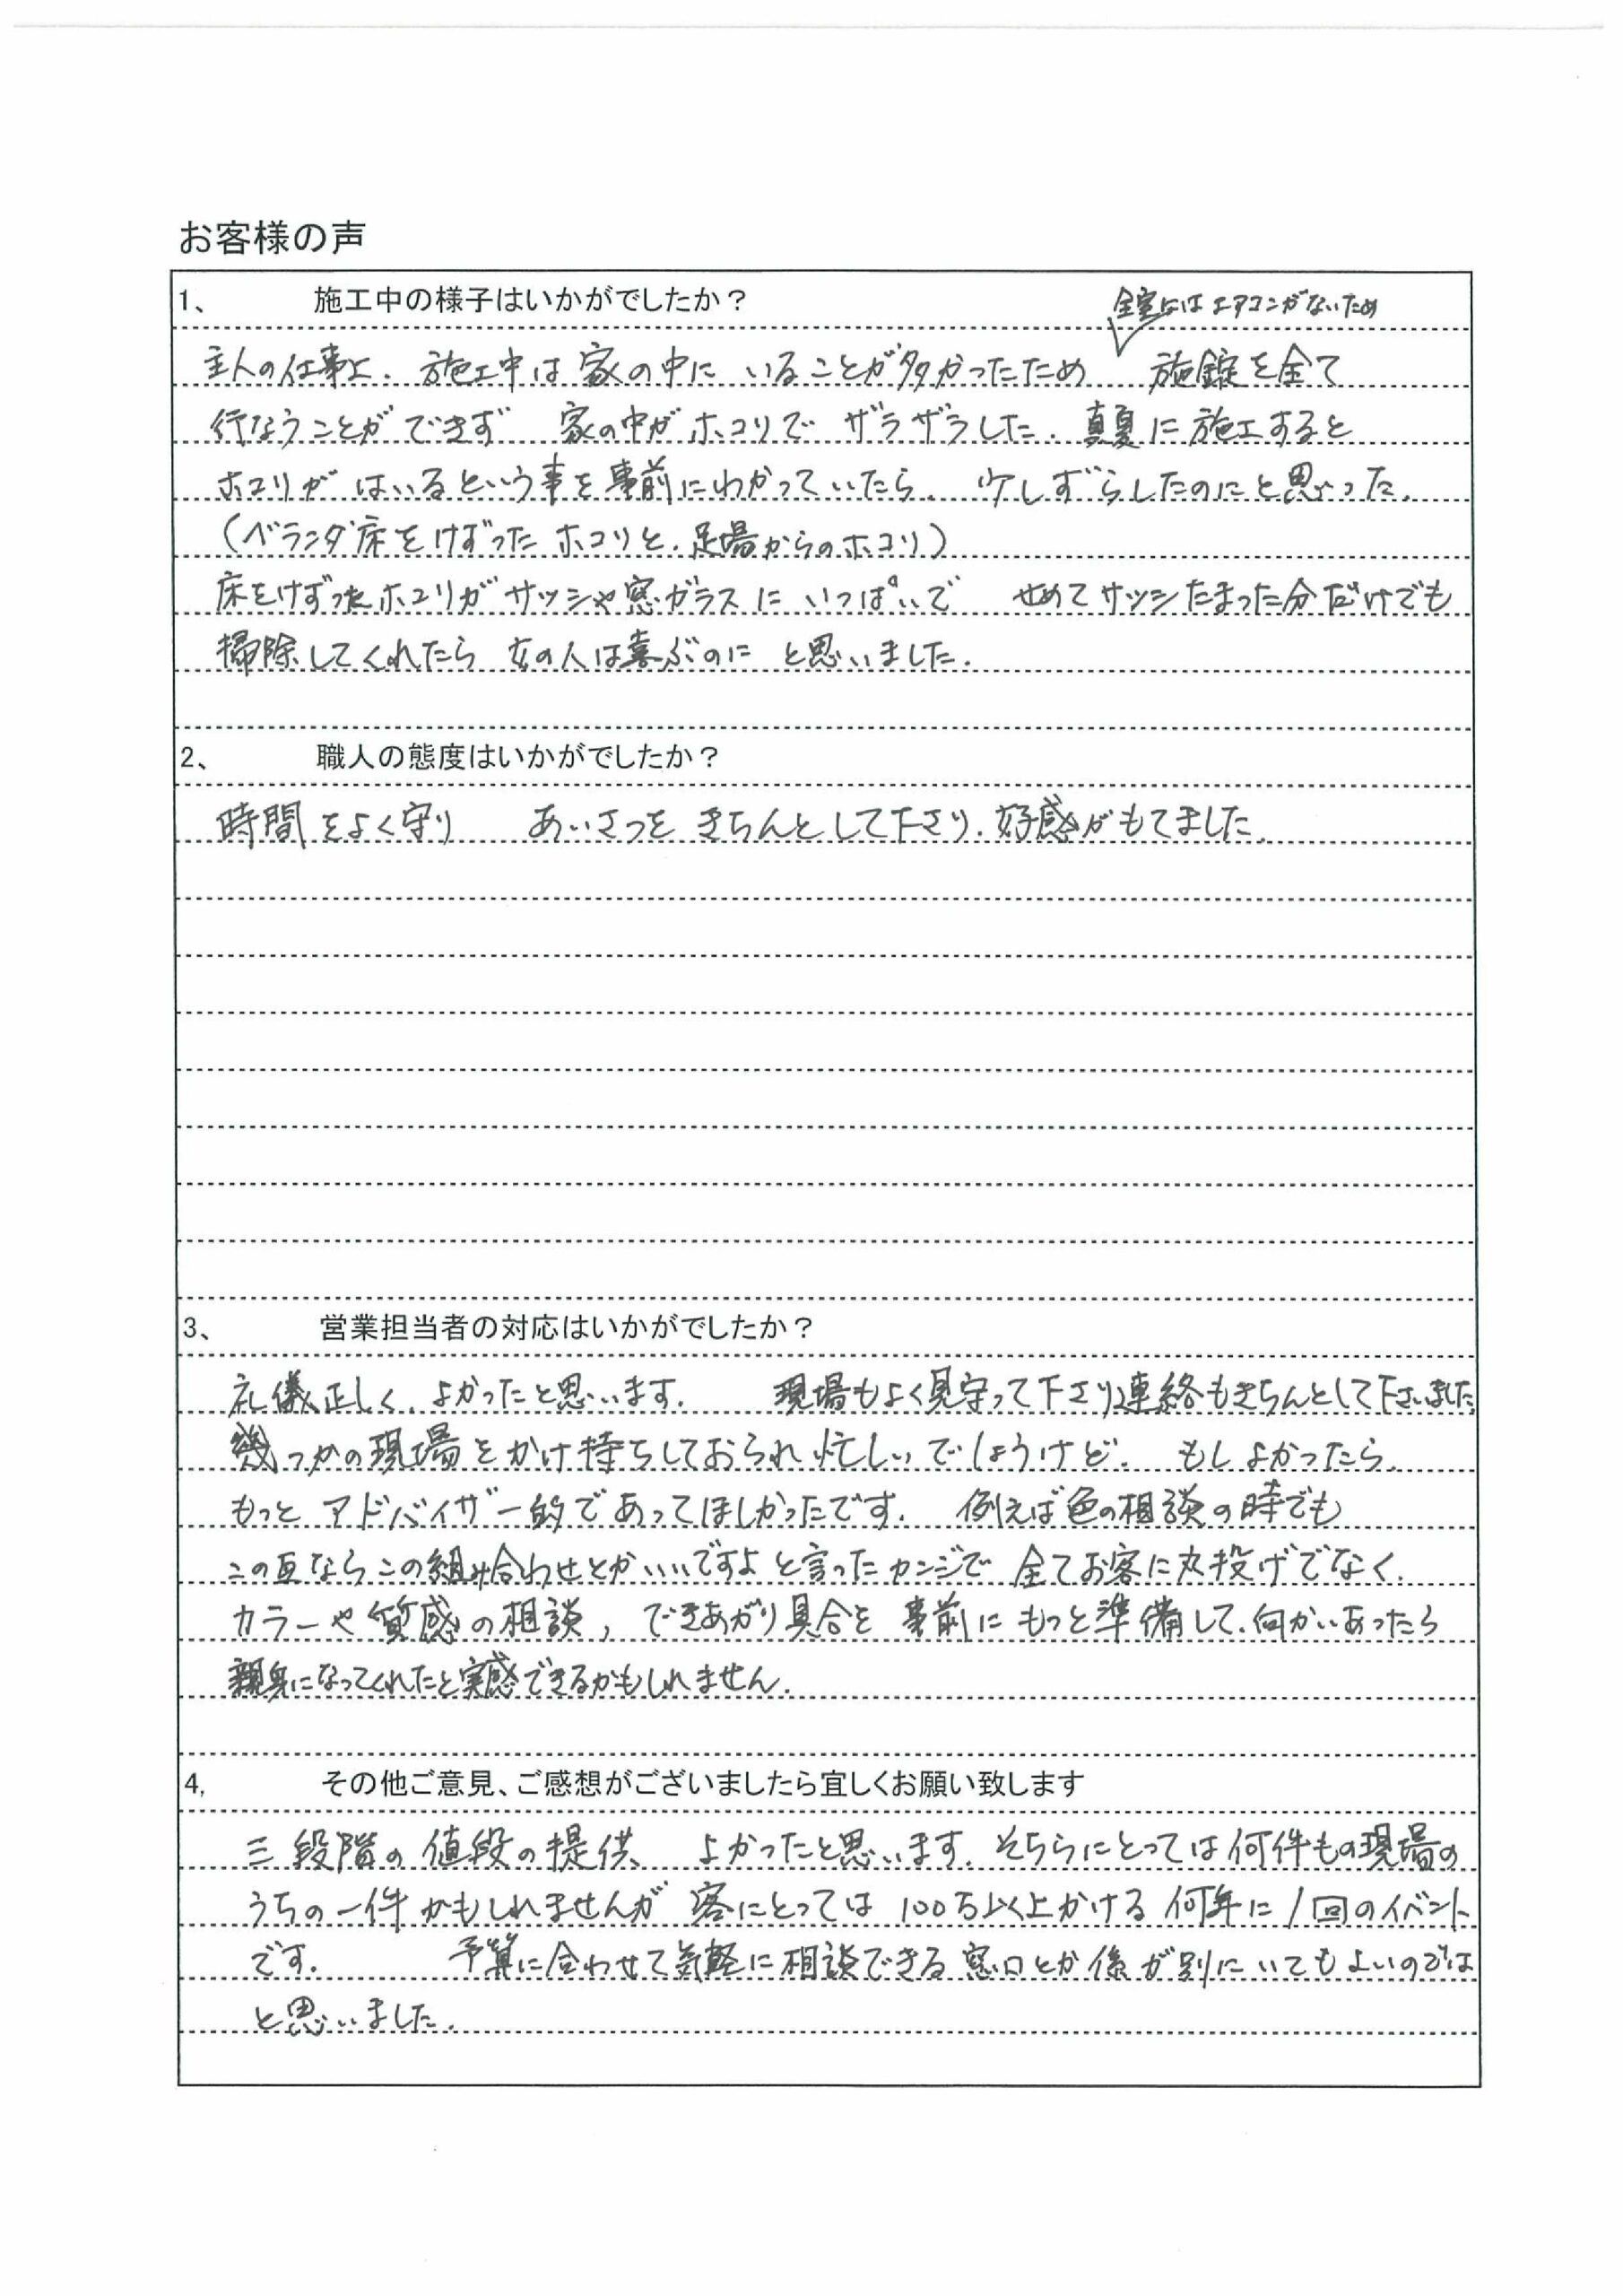 お客様の声
1、 施工中の様子はいかがでしたか？
全室にはエアコンがないため
主人の仕事上、施工中は家の中にいることが多かったため 施錠を全て
行なうことができず 家の中がホコリでザラザラした。真夏に施工すると
ホコリがはいるという事を事前にわかっていたら、少しずらしたのにと思った。
（ベランダ床をけずったホコリと、足場からのホコリ）
床をけずったホコリがサッシや窓ガラスにいっぱいで せめてサッシたまった分だけでも
掃除してくれたら 女の人は喜ぶのに と思いました。
2、 職人の態度はいかがでしたか？
時間をよく守り あいさつをきちんとして下さり、好感がもてました。
3、 営業担当者の対応はいかがでしたか？
礼儀正しく、よかったと思います。 現場もよく見守って下さり連絡もきちんとして下さいました。
幾つかの現場をかけ持ちしておられ忙しいでしょうけど、もしよかったら、
もっとアドバイザー的であってほしかったです。 例えば色の相談の時でも
この瓦ならこの組み合わせとかいいですよと言ったカンジで 全てお客に丸投げでなく、
カラーや質感の相談、できあがり具合を事前にもっと準備して、何かいあったら
親身になってくれたと実感できるかもしれません。
4, その他ご意見、ご感想がございましたら宜しくお願い致します
三段階の値段の提供、よかったと思います。そちらにとっては何件もの現場の
うちの一件かもしれませんが 客にとっては100万以上かける何年に1回のイベント
です。 予算に合わせて気軽に相談できる窓口とか係が別にいてもよいのでは
と思いました。